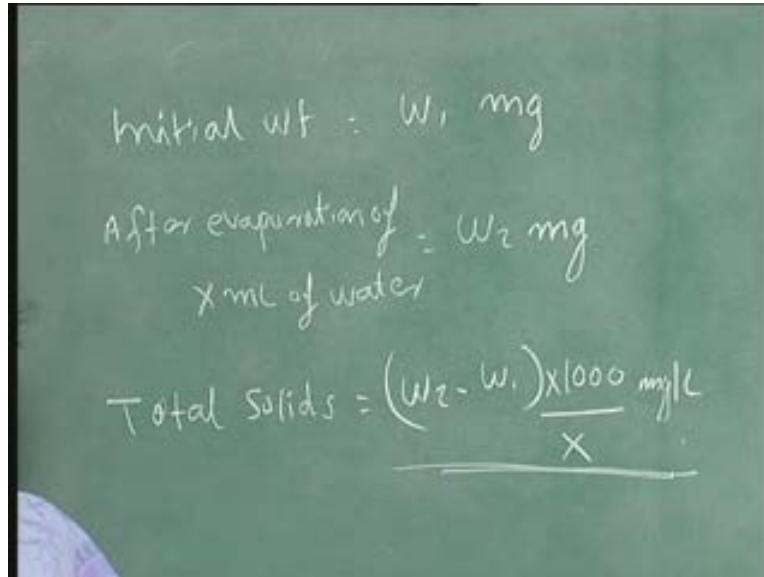 Initial wt = W₁ mg
After evaporation of = W₂ mg
X ml of water
Total Solids = (W₂ - W₁) x1000 / X mg/L